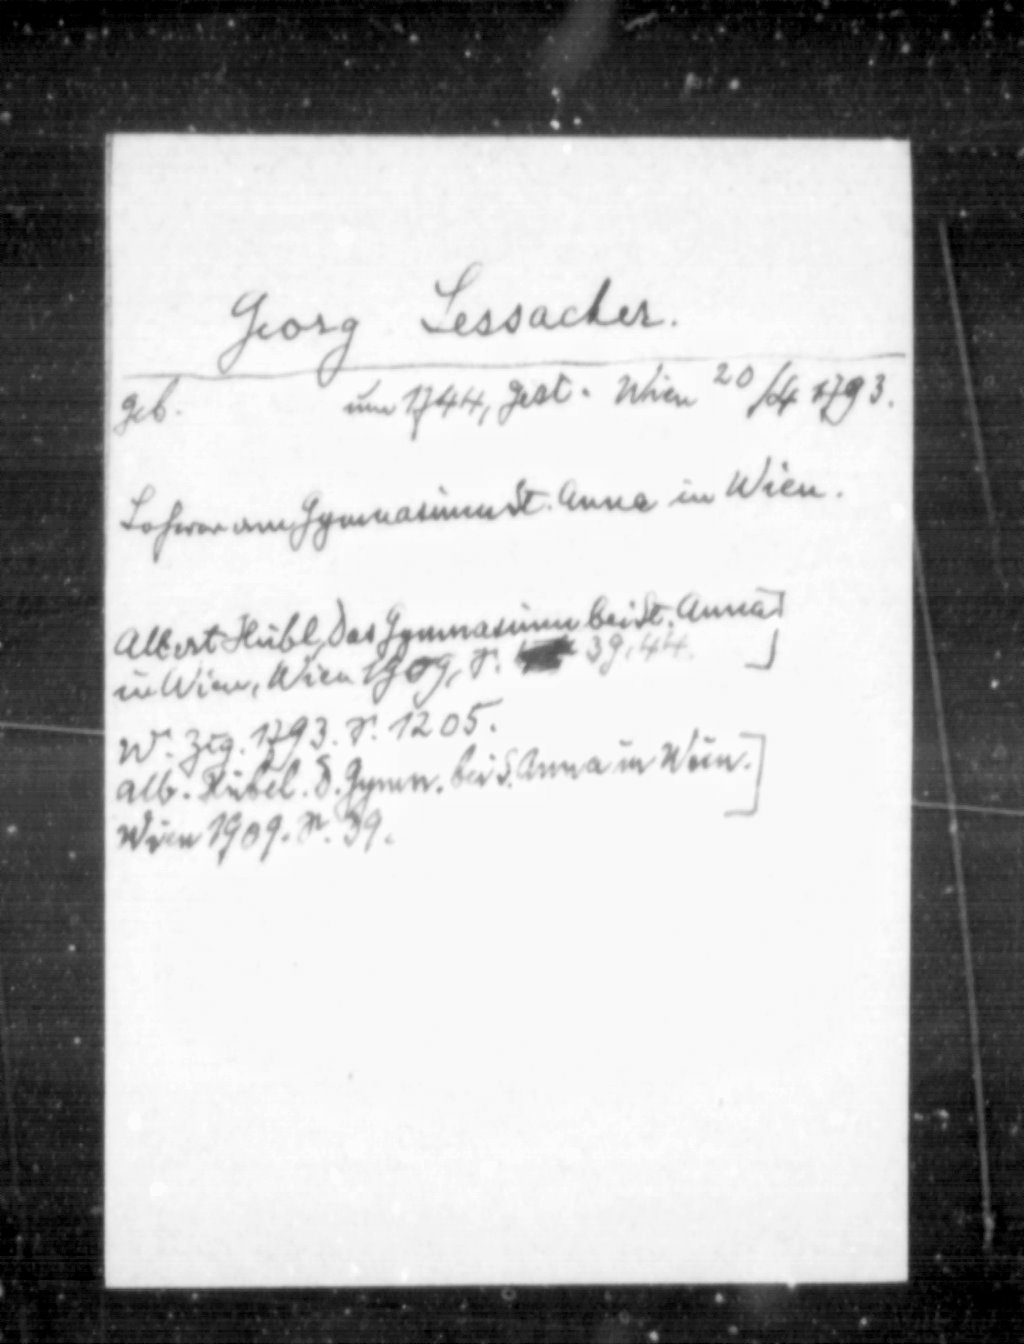 Georg Lessacher.
geb. um 1744, gest. Wien 20/4 1793.
Lehrer am Gymnasium St. Anna in Wien.
Albert Hübl, Das Gymnasium bei St. Anna]
in Wien, Wien 1909, S. 39, 44.]
W. Ztg. 1793. S. 1205.
Alb. Hübel. D. Gymn. bei S. Anna in Wien.]
Wien 1909. S. 39.